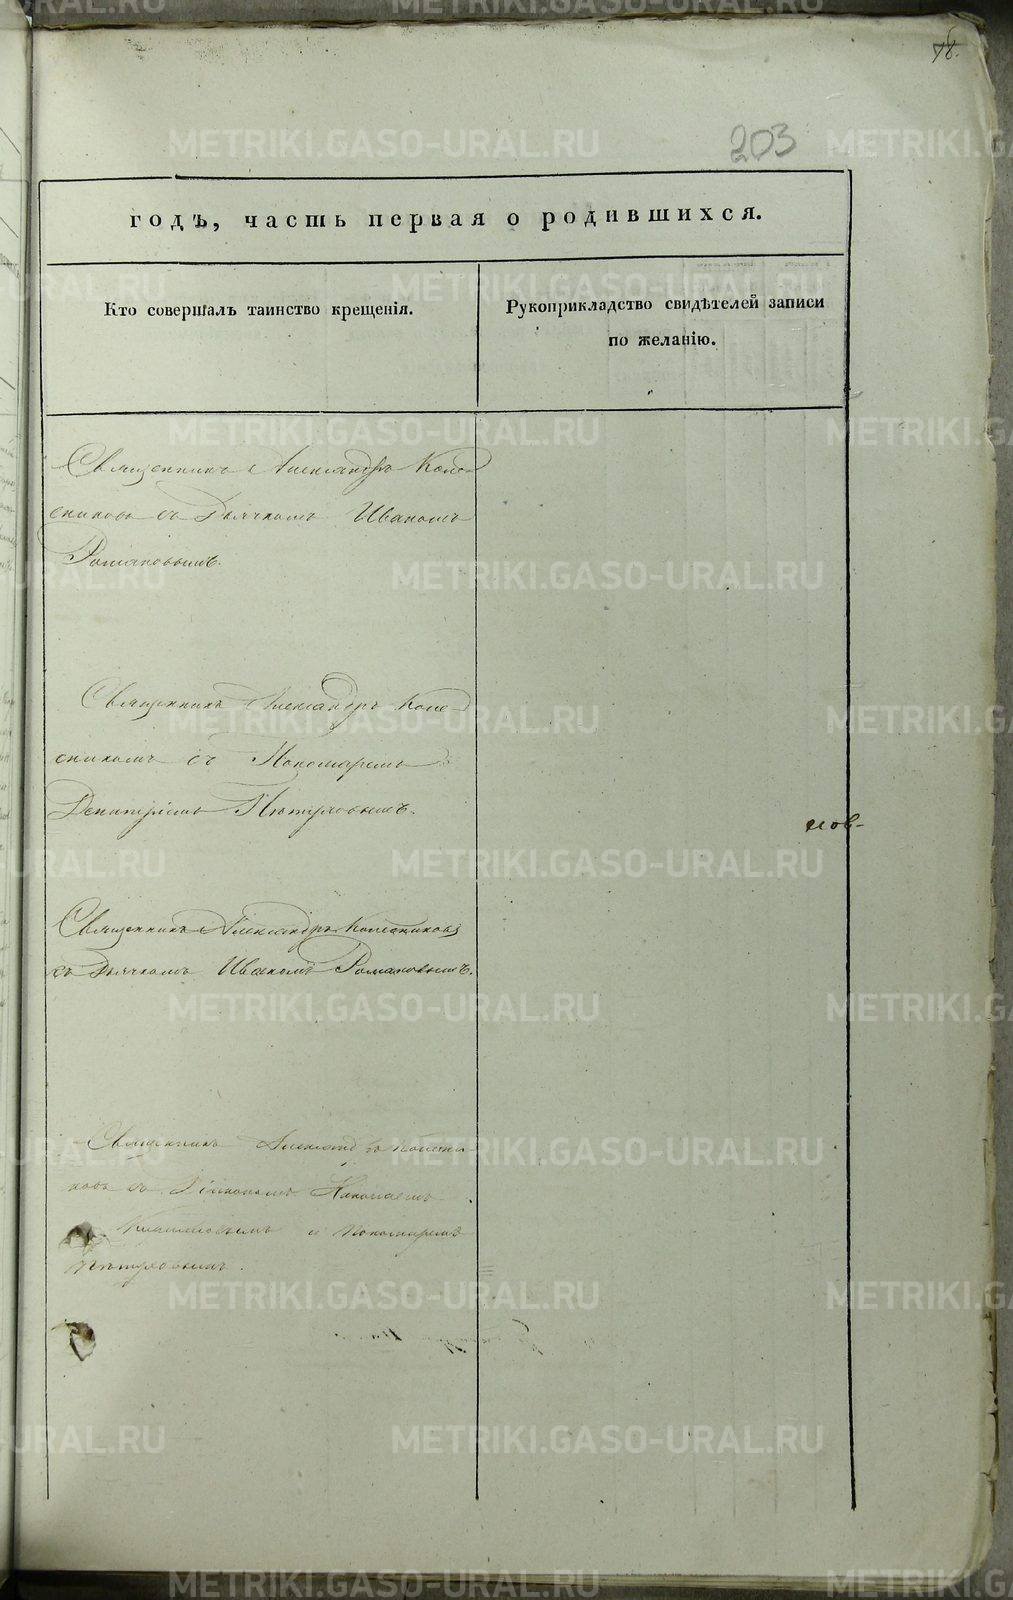 76.
203
годъ, часть первая о родившихся.
Кто совершалъ таинство крещенія.
Рукоприкладство свидѣтелей записи
по желанію.
Священникъ Александръ Колe-
сниковъ съ Дьячкомъ Иваномъ
Романовымъ.
Священникъ Александръ Коле-
сниковъ съ Пономаремъ
Димитріемъ Пѣтуховымъ.
нов-
Священникъ Александръ Колесниковъ
съ Дьячкомъ Иваномъ Романовымъ.
Священникъ Александръ Колесни-
ковъ съ Дьякономъ Николаемъ
и Пономаремъ
Пѣтуховымъ.
METRIKI.GASO-URAL.RU